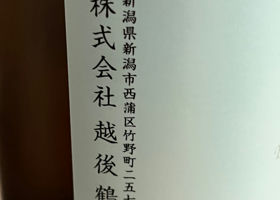 新潟県新潟市西蒲区竹野町二五七
株式会社越後鶴